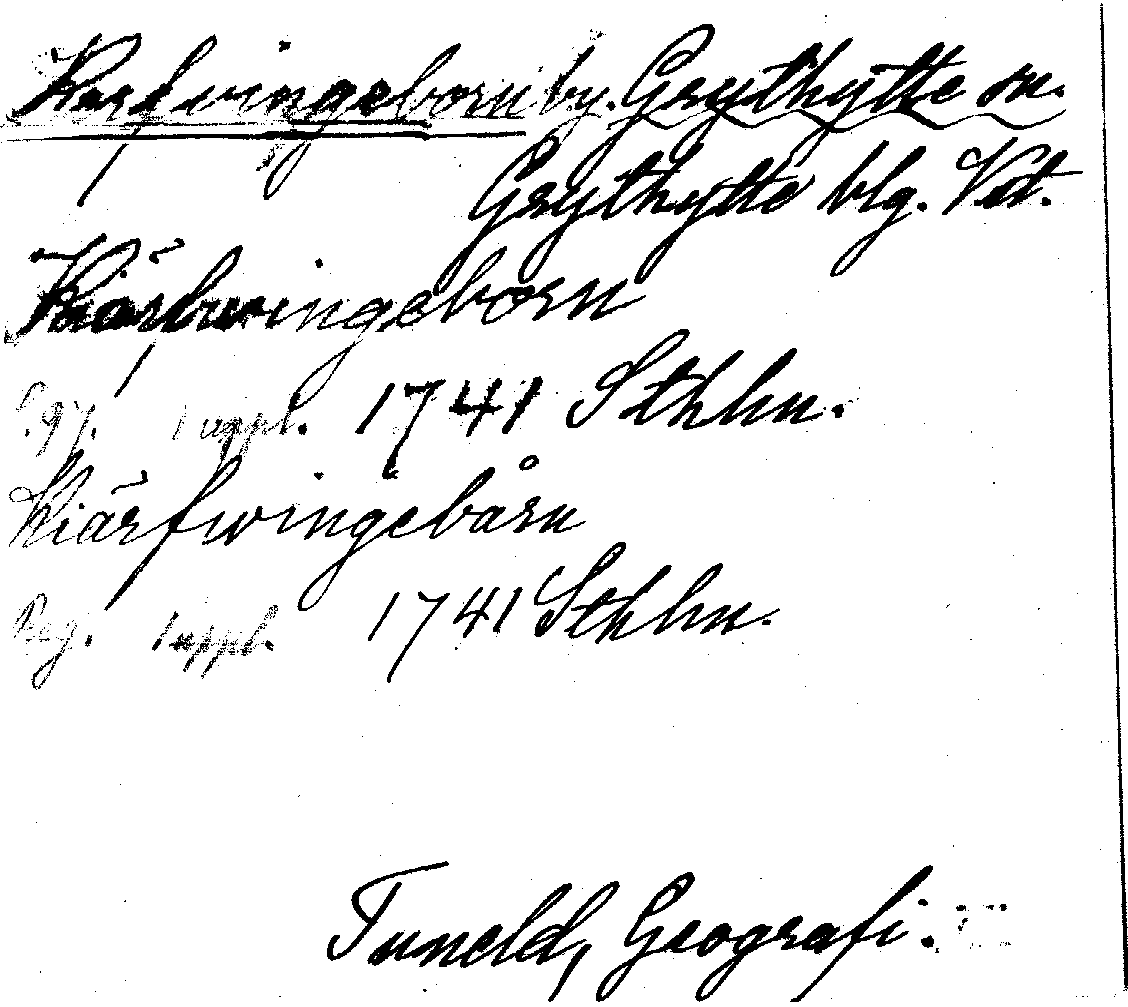 Kärfvingeborn by. Grythytte sn.
Grythytte blg. Vst.
Kiärfwingeborn
S. 97. 1 uppl. 1741 Sthlm.
Kiärfwingebårn
Reg. 1 uppl. 1741 Sthlm.
Tuneld, Geografi.